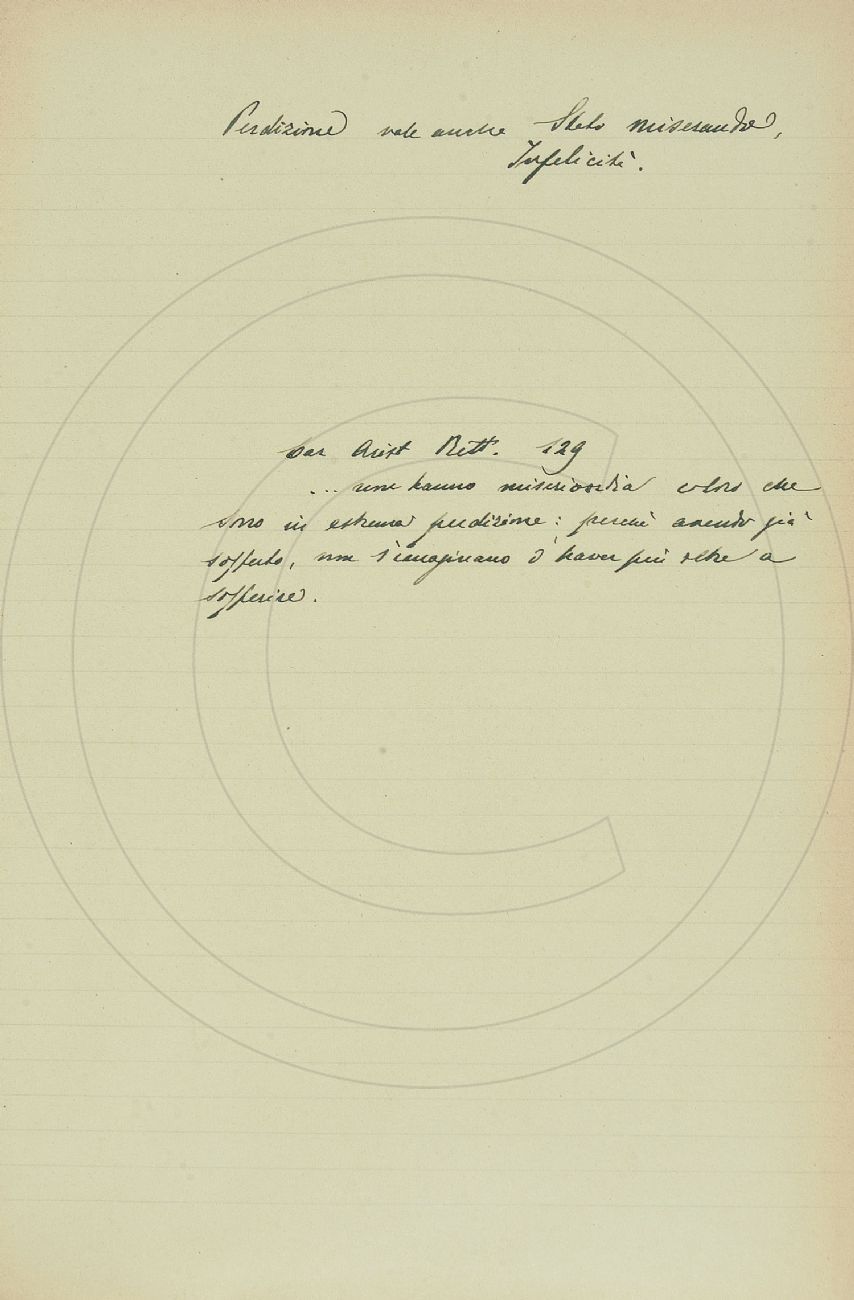 Perdizione vale anche Stato miserando,
Infelicità.
Car Arist Rett. 129
... non hanno misericordia coloro che
sono in estrema perdizione: perchè avendo già
sofferto, non s'imaginano d'haver più oltre a
sofferire.